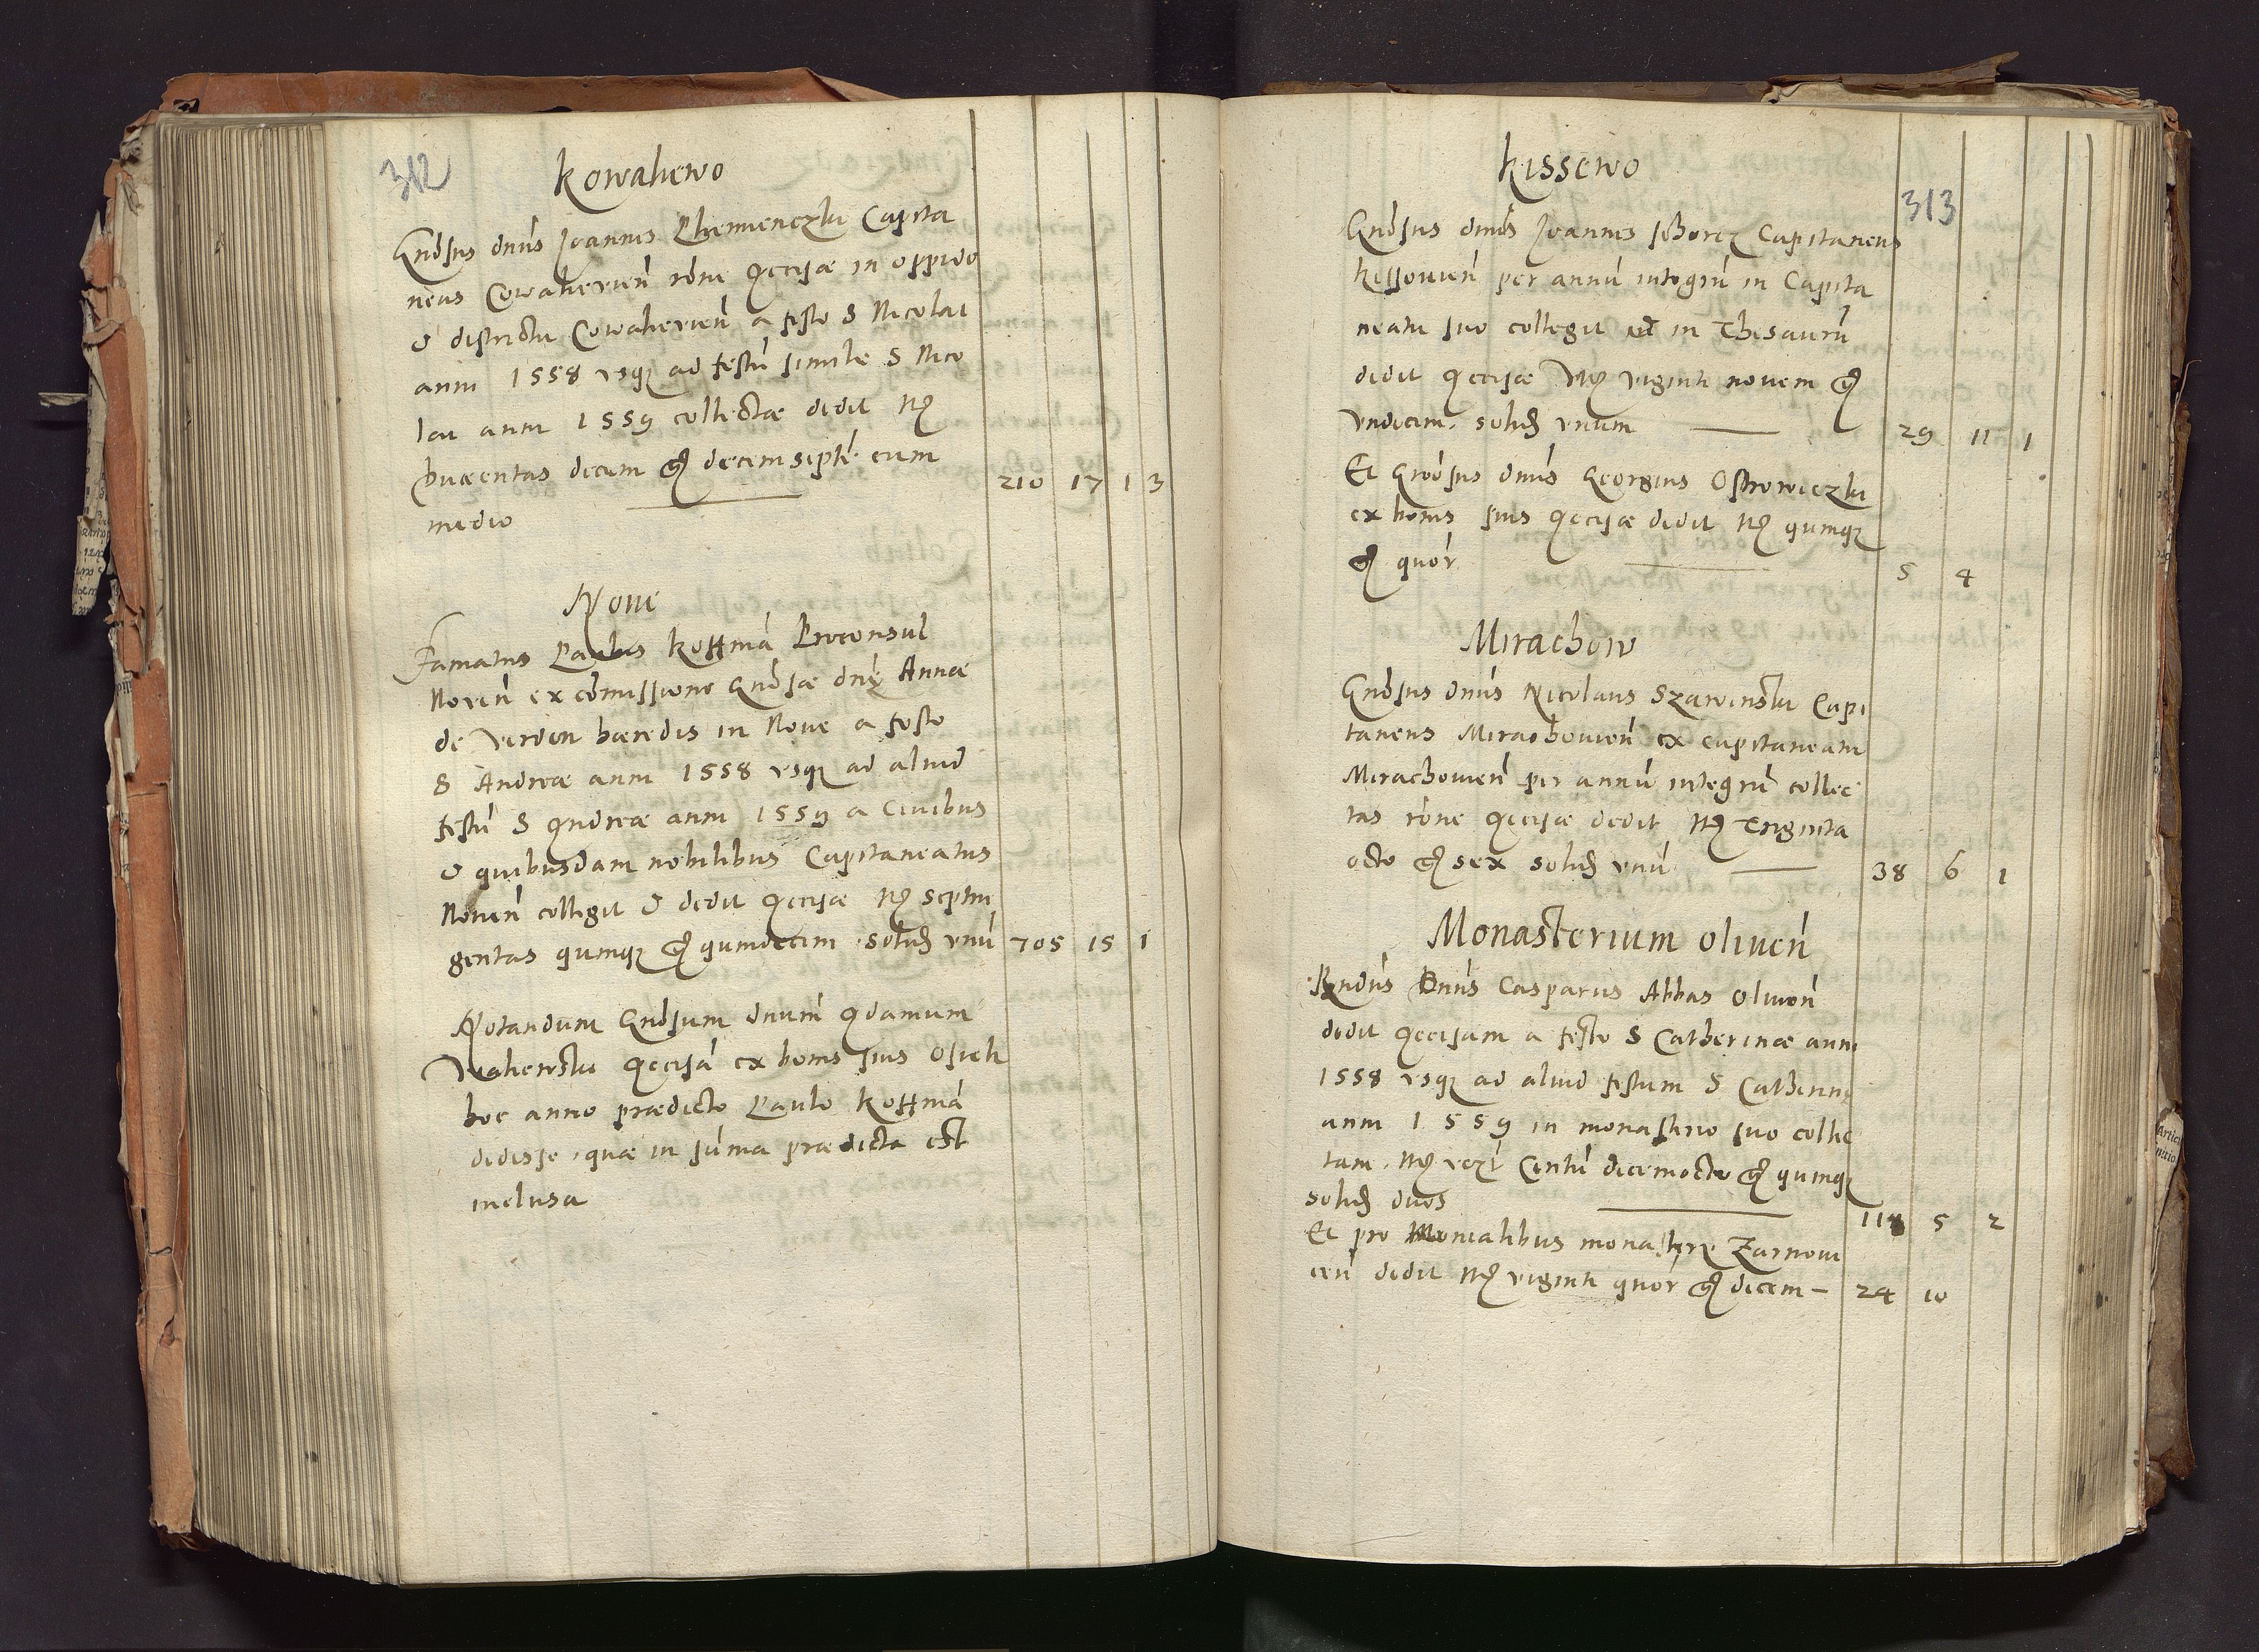 312
Kowalewo
Gnõsus dnũs Joannes Plemienczki Capita
neus Cowalevien̄ rõne Accisæ in oppido
& districtu Cowalievien̄ a festo S Nicolai
anni 1558 vsq; ad festũ simile S Nico
lai anni 1559 collectæ dedit Mʒ
Ducentas decem gʒ decemseptē cum
medio 210 17 1 3
Nove
Famatus Paulus Koffmã Proconsul
Noven̄ ex cõmissione Gnõsæ dnę Annæ
de Verden hæredis in Nove a festo
S Andreæ anni 1558 vsq; ad aliud
festũ S Andreæ anni 1559 a Civibus
& quibusdam nobilibus Capitaneatus
Noven̄ collegit & dedit Accisæ Mʒ septin
gentas quinq; gʒ quindecim solid vnũ 705 15 1
Notandum Gnõsum dnum Adamum
Valiewski Accisã ex bonis suis Osiek
hoc anno prædicto Paulo Koffmã
dedisse, quæ in sũma prædicta est
inclusa
313
Kissewo
Gnõsus dnũs Joannes schorcz Capitaneus
Kissovien̄ per annũ integrũ in Capita
neatu suo collegit et in Thesaurũ
dedit Accisæ Mʒ viginti novem gʒ
vndecim solid vnum 29 11 1
Et Gnõsus dnũs Georgius Ostrowiczki
ex bonis suis Accisæ dedit Mʒ quinq;
gʒ quōr 5 4
Mirachow
Gnõsus dnũs Nicolaus Szawinski Capi
taneus Mirachovien̄ ex capitaneatu
Mirachovien̄ per annũ integrũ collec
tas rõne Accisæ dedit Mʒ Triginta
octo gʒ sex solid vnũ 38 6 1
Monasterium oliven̄
Rndũs Dnũs Casparus Abbas oliven̄
dedit Accisam a festo S Catherinæ anni
1558 vsq; ad aliud festum S Catherinę
anni 1559 in monasterio suo collec
tam Mʒ Centũ decemocto gʒ quinq;
solid duos 118 5 2
Et pro Monialibus monasterii Zarnovi
cen̄ dedit Mʒ viginti quōr gʒ decem 24 10